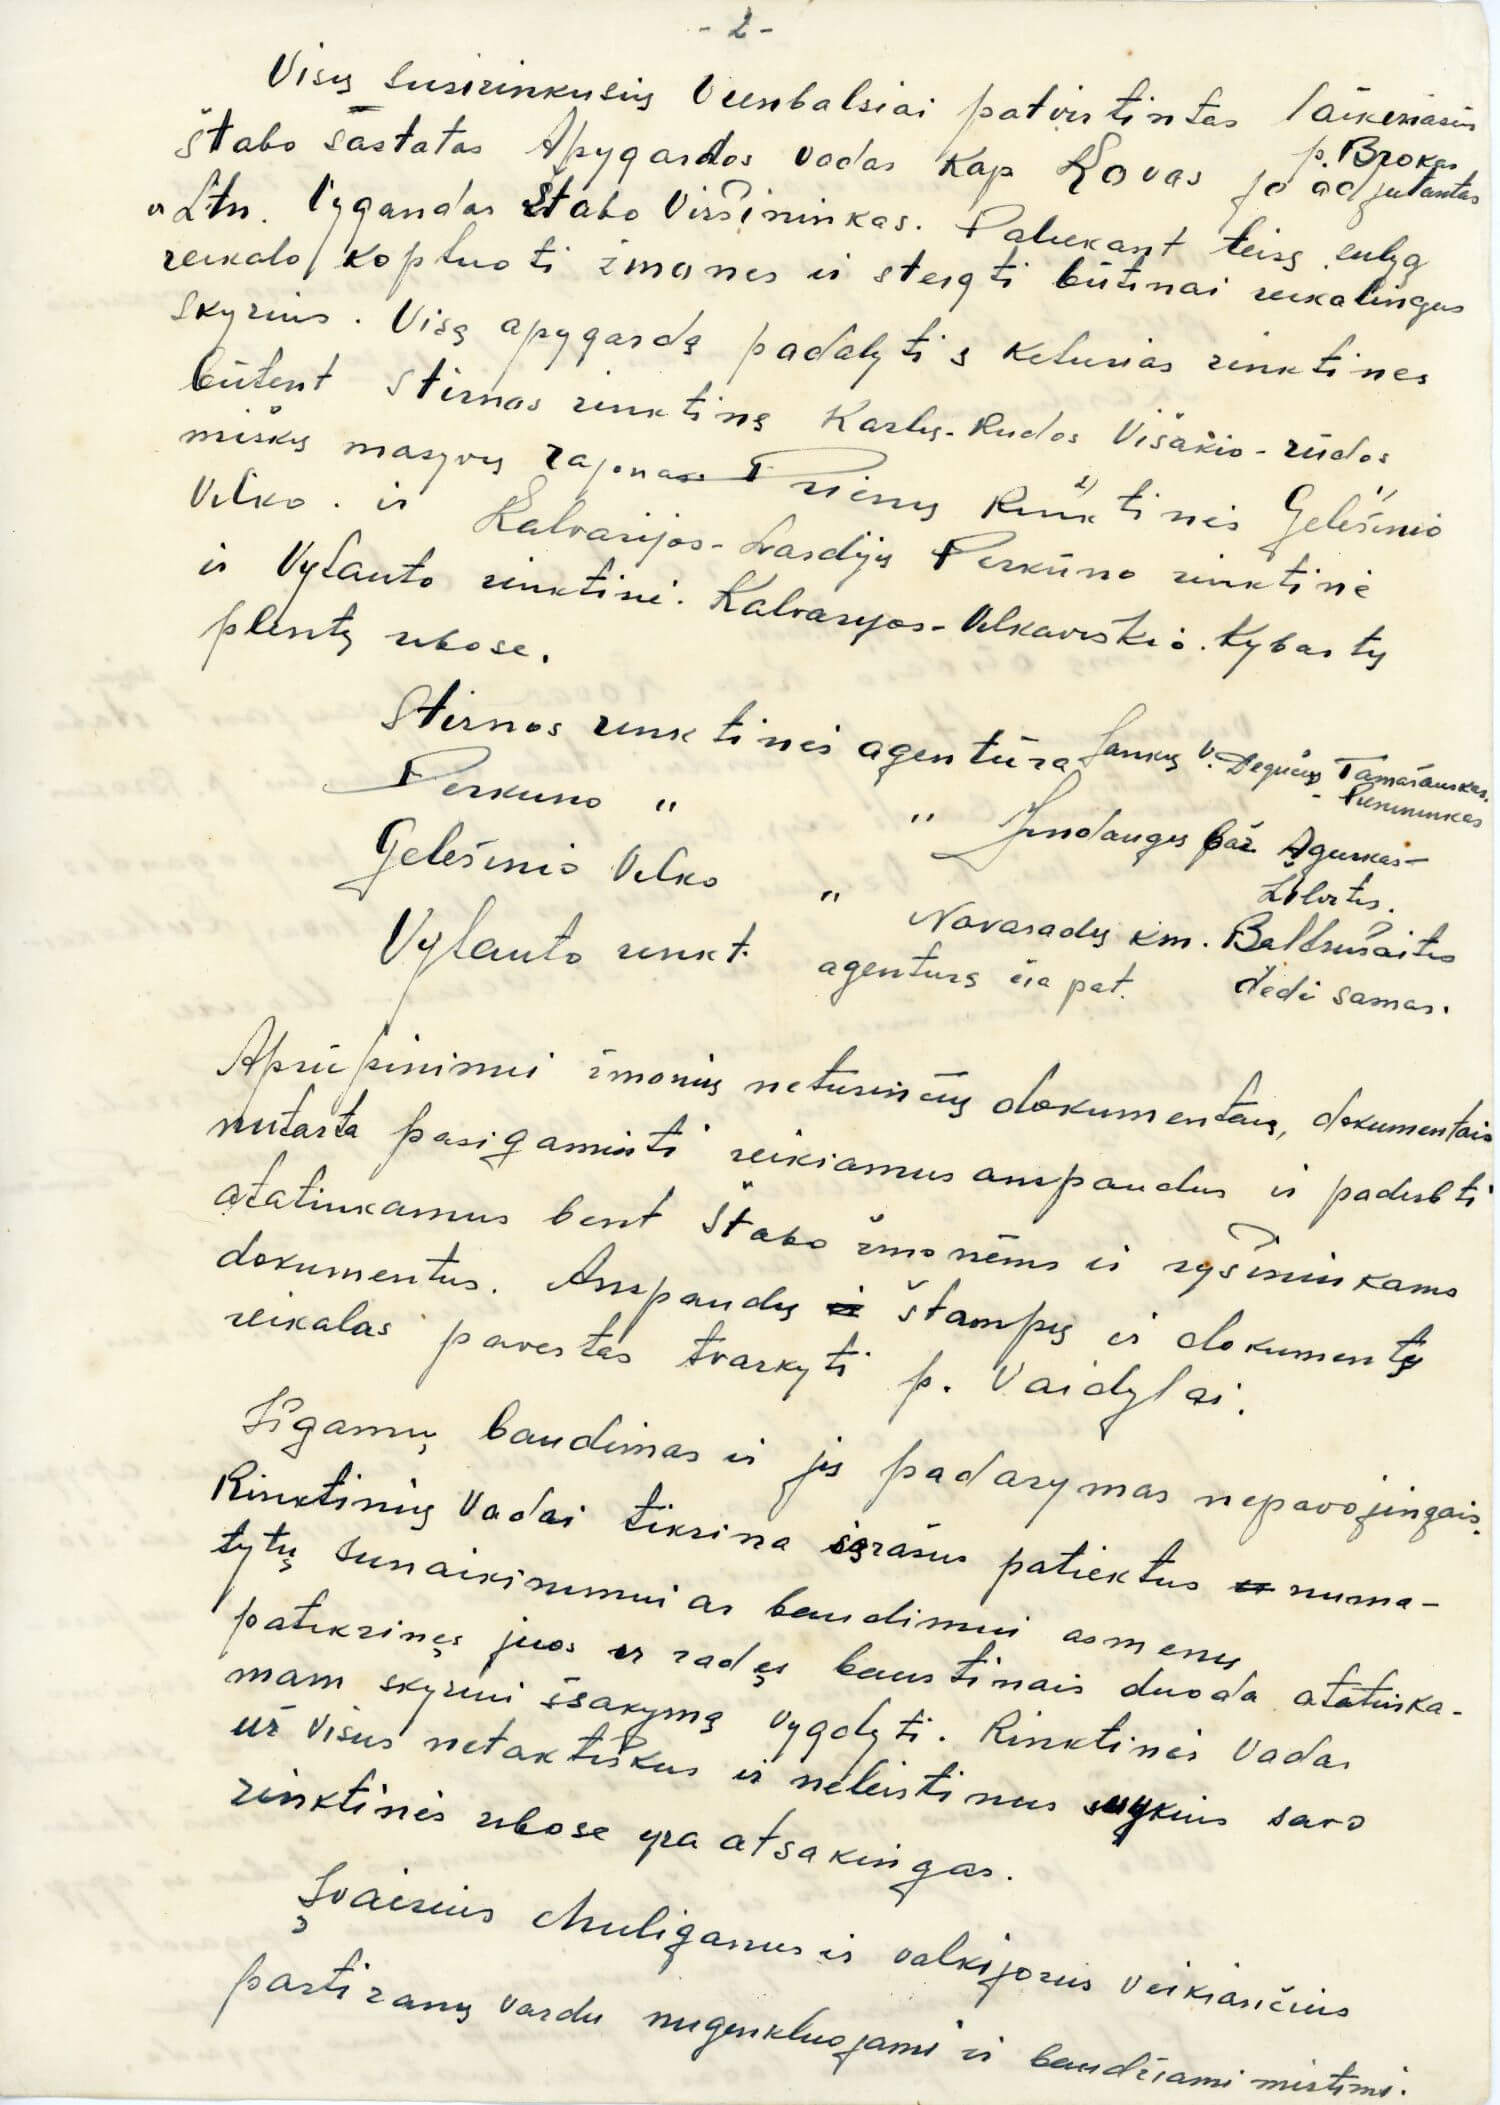 - 2 -
Visų susirinkusių vienbalsiai patvirtintas laikinasis
štabo sąstatas Apygardos vadas Kap Kovas jo adjutantas
p. Brokas
Ltn. Vygandas Štabo Viršininkas. Paliekant teisę sulyg
reikalo koptuoti žmones ir steigti būtinai reikalingus
skyrius. Visą apygardą padalyti į keturias rinktines
būtent Stirnos rinktinę Kazlų-Rudos Višakio-rūdos
miškų masyvų rajonas Prienų Rinktinės Geležinio
Vilko. ir Kalvarijos-Lazdijų Perkūno rinktinė
ir Vytauto rinktinė. Kalvarijos-Vilkaviškio. Kybartų
plentų ribose.
Stirnos rinktinės agentūra Jankų v. Degučių Tamašauskas.
- Pienininkas
Perkuno " " Jundaugų baž. Agurkas-
Geležinio Vilko " Novarados km. Baltrušaitis
Vytauto rinkt. agentura čia pat. dėdė samas.
Aprūpinimui žmonių neturinčių dokumentais, dokumentais
nutarta pasigaminti reikiamus anspaudus ir padirbti
atatinkamus bent Štabo žmonėms ir ryšininkams
dokumentus. Anspaudų štampų ir dokumentų
reikalas pavestas tvarkyti p. Vaidylai.
Išgamų baudimas ir jų padarymas nepavojingais.
Rinktinių Vadai tikrina sąrašus patiektus numa-
tytų sunaikinimui ar baudimui asmenų
patikrinęs juos ir radęs baustinais duoda atatinka-
mam skyriui įsakymą vygdyti. Rinktinės Vadas
už visus netaktiškus ir neleistinus žygius savo
rinktinės ribose yra atsakingas.
Įvairius chuliganus ir valkijozus veikiančius
partizanų vardu nugenkluojami ir baudžiami mirtimi.